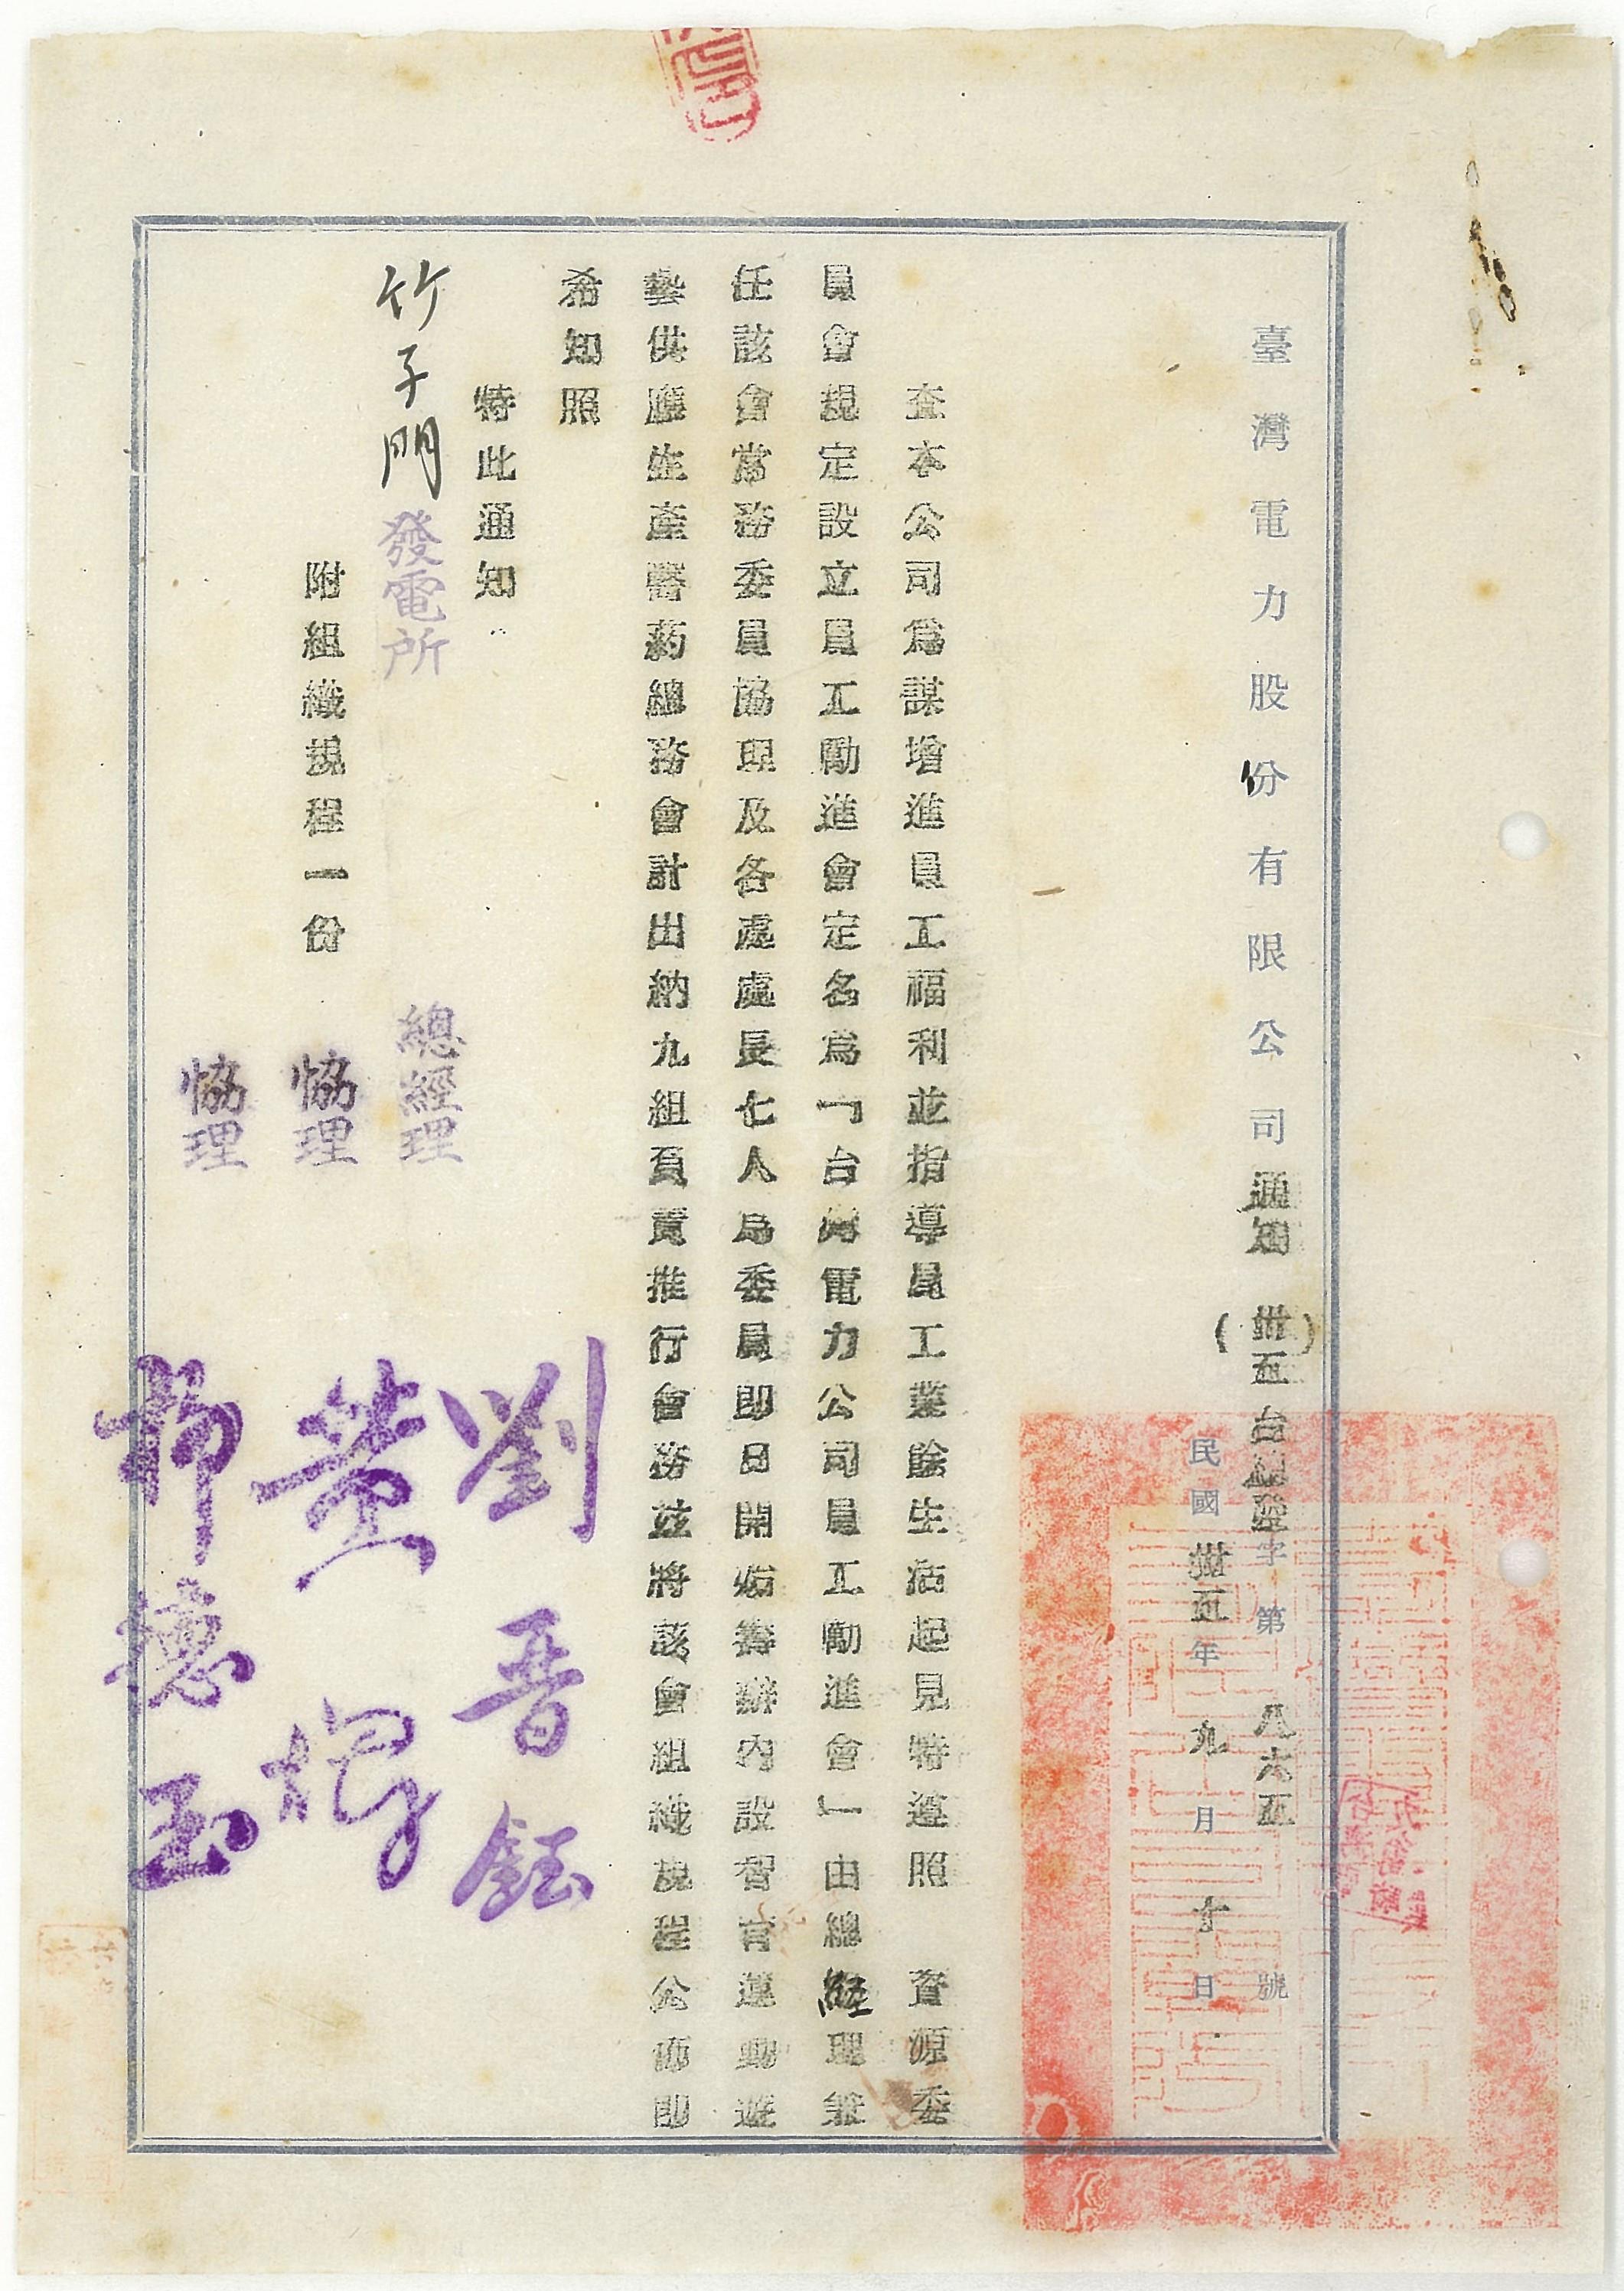 臺灣電力股份有限公司通知(卅五)台電發字第八六五號
民國卅五年九月十日
查本公司為謀增進員工福利並指導員工業餘生活起見特遵照 資源委
員會規定設立員工勵進會定名為「台灣電力公司員工勵進會」由總經理兼
任該會常務委員協理及各處處長七人為委員即日開始籌辦內設智育運動遊
藝供應生產醫葯總務會計出納九組負責推行會務茲將該會組織規程公佈即
希知照
特此通知
竹子門發電所
附組織規程一份
總經理 劉晋鈺
協理 黃煇
協理 柳德玉